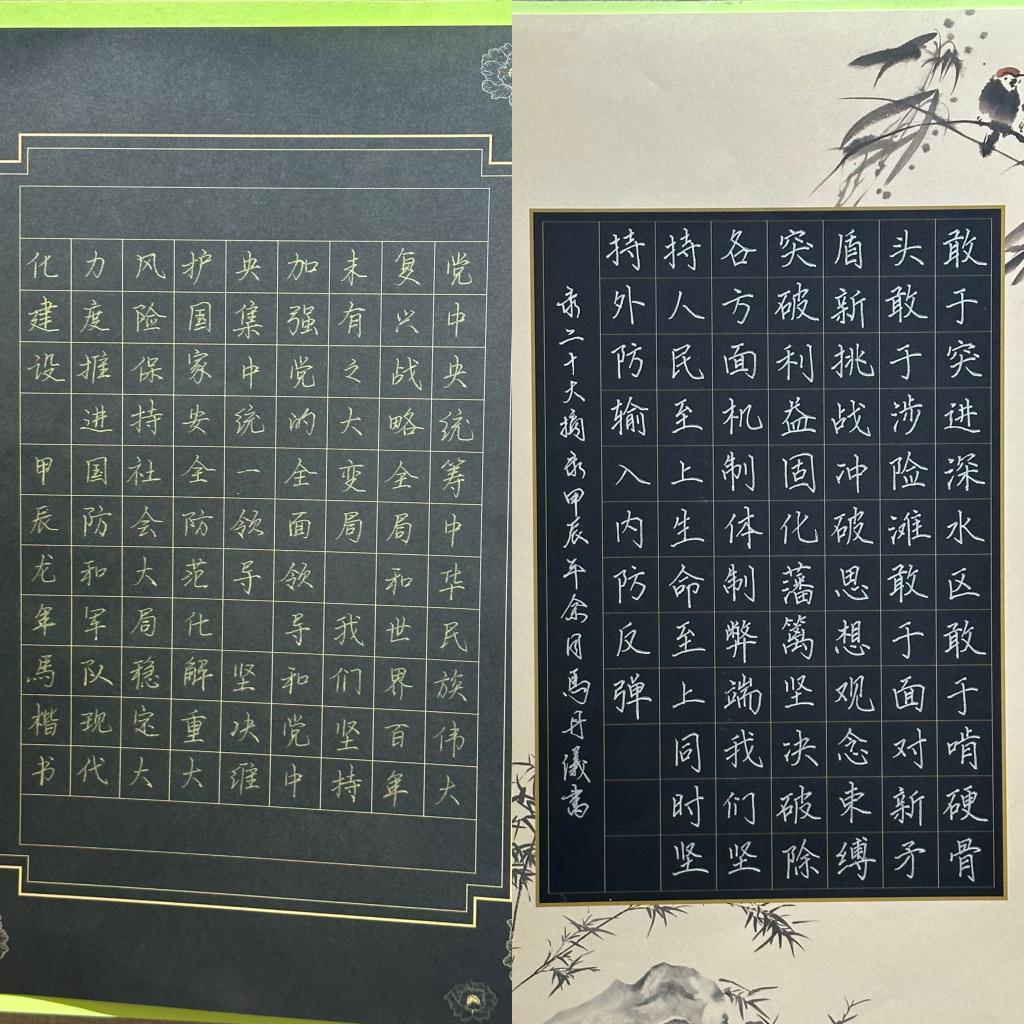 党中央统筹中华民族伟大
复兴战略全局和世界百年
未有之大变局 我们坚持
加强党的全面领导和党中
央集中统一领导 坚决维
护国家安全防范化解重大
风险保持社会大局稳定大
力度推进国防和军队现代
化建设 甲辰龙年馬楷书
敢于突进深水区敢于啃硬骨
头敢于涉险滩敢于面对新矛
盾新挑战冲破思想观念束缚
突破利益固化藩篱坚决破除
各方面机制体制弊端我们坚
持人民至上生命至上同时坚
持外防输入内防反弹
录二十大摘录甲辰年余月馬丹儀書